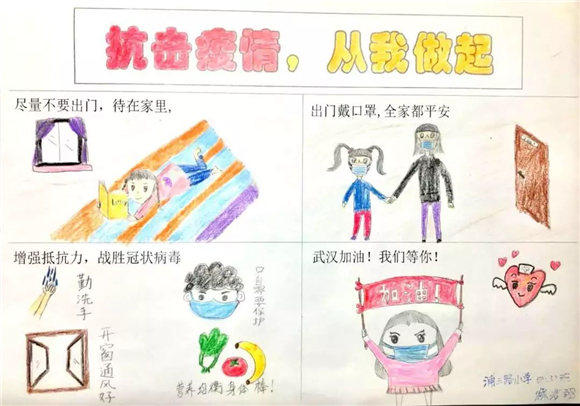 抗击疫情，从我做起
尽量不要出门，待在家里，
出门戴口罩,全家都平安
增强抵抗力，战胜冠状病毒
勤洗手
开窗通风好
营养均衡身体棒！
武汉加油！我们等你！
加油！